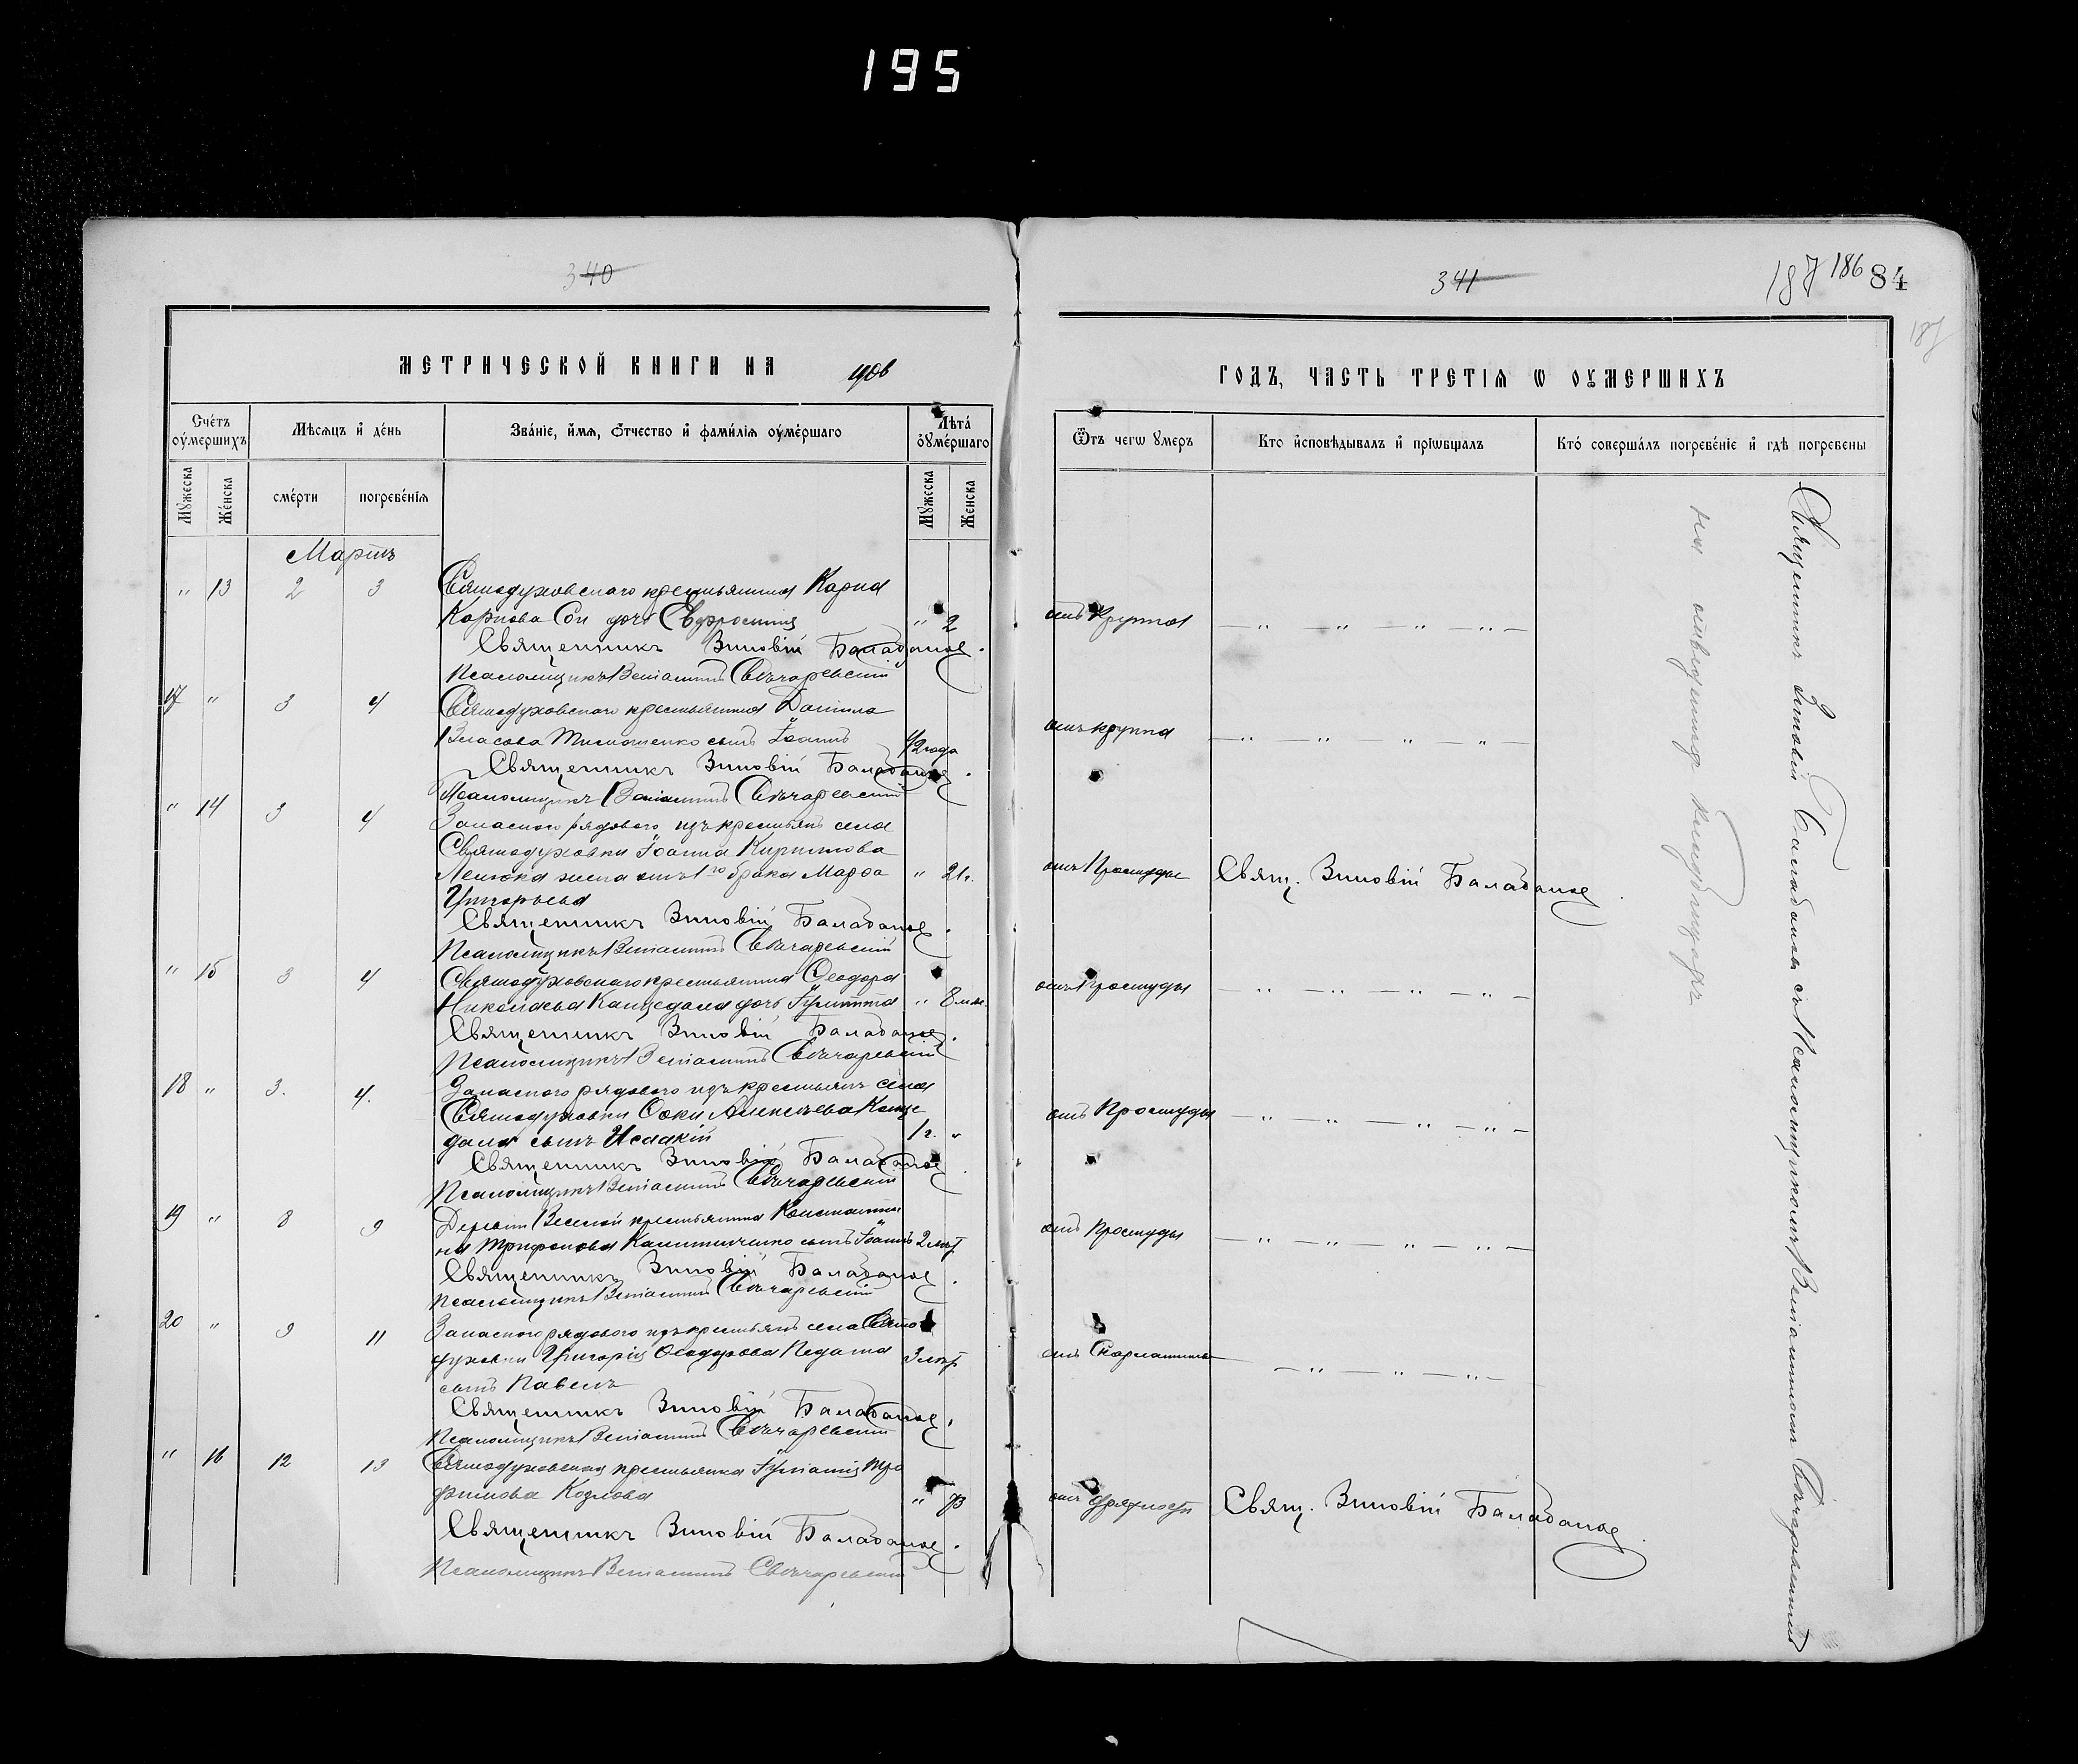 195
340
МЕТРИЧЕСКОЙ КНИГИ НА 1906
Счётъ оумершихъ
Мѣсяцъ и день
Званіе, имя, отчество и фамилія оумершаго
Лѣта оумершаго
Мужеска
Женска
смерти
погребенія
Мужеска
Женска
Мартъ
" 13 2 3 Святодуховскаго крестьянина Карпа
Карпова Сои дочь Евфросинія " 2
Священникъ Зиновій Балабанов.
Псаломщикъ Веніаминъ Свѣчаревскій
17 " 3 4 Святодуховскаго крестьянина Даніила
Власова Тимошенко сынъ Іоаннъ 1/2 года
Священникъ Зиновій Балабанов.
Псаломщикъ Веніаминъ Свѣчаревскій
" 14 3 4 Запаснаго рядового изъ крестьянъ села
Святодуховки Іоанна Кириллова
жена отъ 1го брака Марфа " 21г.
Григорьева
Священникъ Зиновій Балабанов.
Псаломщикъ Веніаминъ Свѣчаревскій
" 15 3 4 Святодуховскаго крестьянина Ѳеодора
Николаева Канцедала дочь Іулитта " 8 м.
Священникъ Зиновій Балабанов.
Псаломщикъ Веніаминъ Свѣчаревскій
18 " 3. 4. Запаснаго рядового изъ крестьянъ села
Святодуховки Ѳоки Алексѣева Канце
дала сынъ Исаакій 1г. "
Священникъ Зиновій Балабанов.
Псаломщикъ Веніаминъ Свѣчаревскій
19 " 8 9 Деревни Веселой крестьянина Константи
на Трифонова сынъ Іоаннъ 2 лѣт.
Священникъ Зиновій Балабанов.
Псаломщикъ Веніаминъ Свѣчаревскій
20 " 9 11 Запаснаго рядового изъ крестьянъ села Свято
духовки Григорія Ѳеодорова 3 лѣт.
сынъ Павелъ
Священникъ Зиновій Балабанов.
Псаломщикъ Веніаминъ Свѣчаревскій
" 16 12 13 Святодуховская крестьянка Іуліанія Тро
фимова Козлова "
Священникъ Зиновій Балабанов.
Псаломщикъ Веніаминъ Свѣчаревскій
341
187 186 84
187
ГОДЪ, ЧАСТЬ ТРЕТІЯ Ѡ ОУМЕРШИХЪ
Ѿтъ чегѡ умеръ
Кто исповѣдывалъ и пріѡбщалъ
Кто совершалъ погребеніе и гдѣ погребены
отъ Круппа — " — " — " — " —
отъ круппа — " — " — " — " —
отъ Простуды Свящ. Зиновій Балабанов
отъ Простуды — " — " — " — " —
отъ Простуды — " — " — " — " —
отъ Простуды — " — " — " — " —
отъ Скарлатины — " — " — " —
отъ дряхлости Свящ. Зиновій Балабанов
Священникъ Зиновій Балабановъ съ Псаломщикомъ Веніаминомъ Свѣчаревскимъ
на отведенномъ кладбищѣ